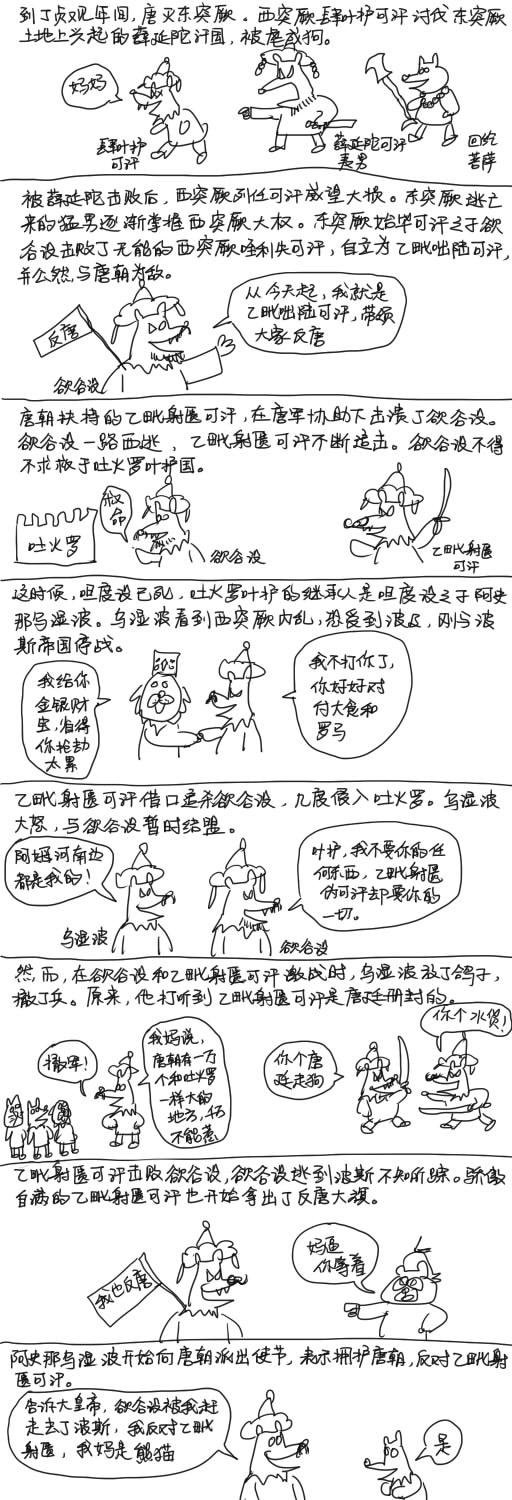 到了贞观年间，唐灭东突厥。西突厥肆叶护可汗讨伐东突厥
土地上兴起的薛延陀汗国，被虐成狗。
妈妈
肆叶护
可汗
薛延陀可汗
夷男
回纥
菩萨
被薛延陀击败后，西突厥列任可汗威望大损。东突厥逃亡
来的猛男逐渐掌握西突厥大权。东突厥始毕可汗之子欲
谷设击败了无能的西突厥咥利失可汗，自立为乙毗咄陆可汗，
并公然与唐朝为敌。
反唐
从今天起，我就是
乙毗咄陆可汗，带领
大家反唐
欲谷设
唐朝扶持的乙毗射匮可汗，在唐军协助下击溃了欲谷设。
欲谷设一路西逃，乙毗射匮可汗不断追击。欲谷设不得
不求救于吐火罗叶护国。
吐火罗
救
命
欲谷设
乙毗射匮
可汗
这时候，呾度设已死，吐火罗叶护的继承人是呾度设之子阿史
那乌湿波。乌湿波看到西突厥内乱，恐受到波及，刚与波
斯帝国停战。
我给你
金银财
宝，省得
你抢劫
太累
我不打你了，
你好好对
付大食和
罗马
乙毗射匮可汗借口追杀欲谷设，几度侵入吐火罗。乌湿波
大怒，与欲谷设暂时结盟。
阿姆河南边
都是我的！
乌湿波
叶护，我不要你的任
何东西，乙毗射匮
伪可汗却要你的
一切。
欲谷设
然而，在欲谷设和乙毗射匮可汗激战时，乌湿波放了鸽子，
撤了兵。原来，他打听到乙毗射匮可汗是唐廷册封的。
撤军！
我妈说，
唐朝有一万
个和吐火罗
一样大的
地方，千万
不能惹
你个唐
廷走狗
你个水货！
乙毗射匮可汗击败欲谷设，欲谷设逃到波斯不知所踪。骄傲
自满的乙毗射匮可汗也开始拿出了反唐大旗。
我也反唐
妈逼
你等着
阿史那乌湿波开始向唐朝派出使节，表示拥护唐朝，反对乙毗射
匮可汗。
告诉大皇帝，欲谷设被我赶
走去了波斯，我反对乙毗
射匮，我妈是熊猫
是